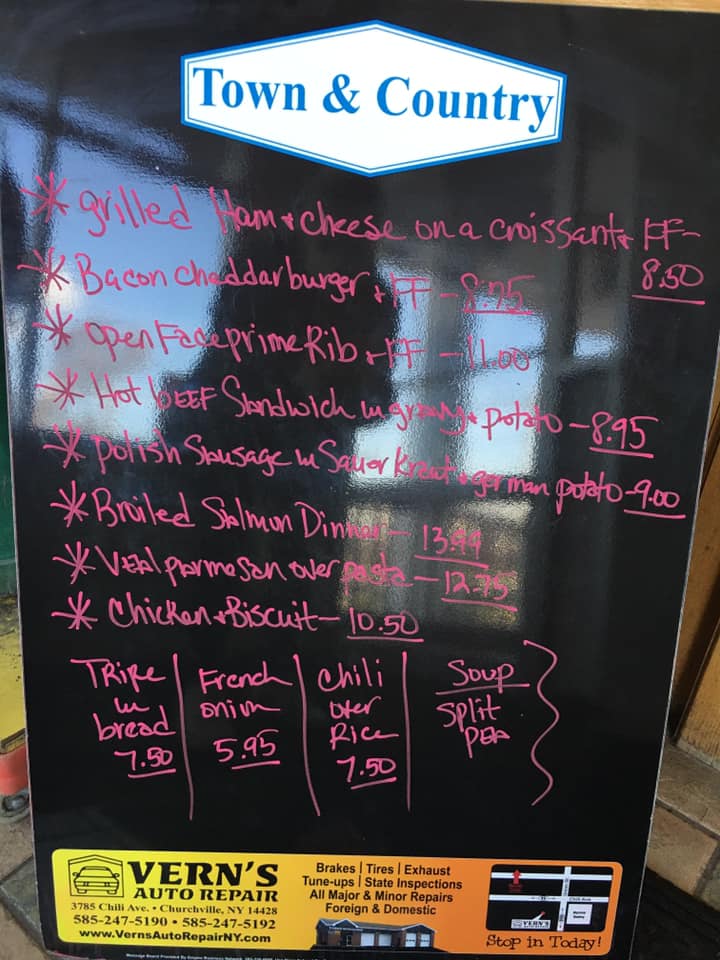 Town & Country
* grilled Ham + cheese on a croissant + FF - 8.50
* Bacon cheddar burger + FF - 8.95
* Open Face prime Rib + FF - 11.00
* Hot BEEF Sandwich w gravy + potato - 8.95
* polish Sausage w Sauer Kraut + german potato - 9.00
* Broiled Salmon Dinner - 13.99
* Veal parmesan over pasta - 12.75
* Chicken + Biscuit - 10.50
Tripe w bread 7.50
French onion 5.95
Chili over Rice 7.50
Soup Split pea
VERN'S
AUTO REPAIR
3785 Chili Ave. • Churchville, NY 14428
585-247-5190 • 585-247-5192
www.VernsAutoRepairNY.com
Brakes | Tires | Exhaust
Tune-ups | State Inspections
All Major & Minor Repairs
Foreign & Domestic
VERN'S
Stop in Today!